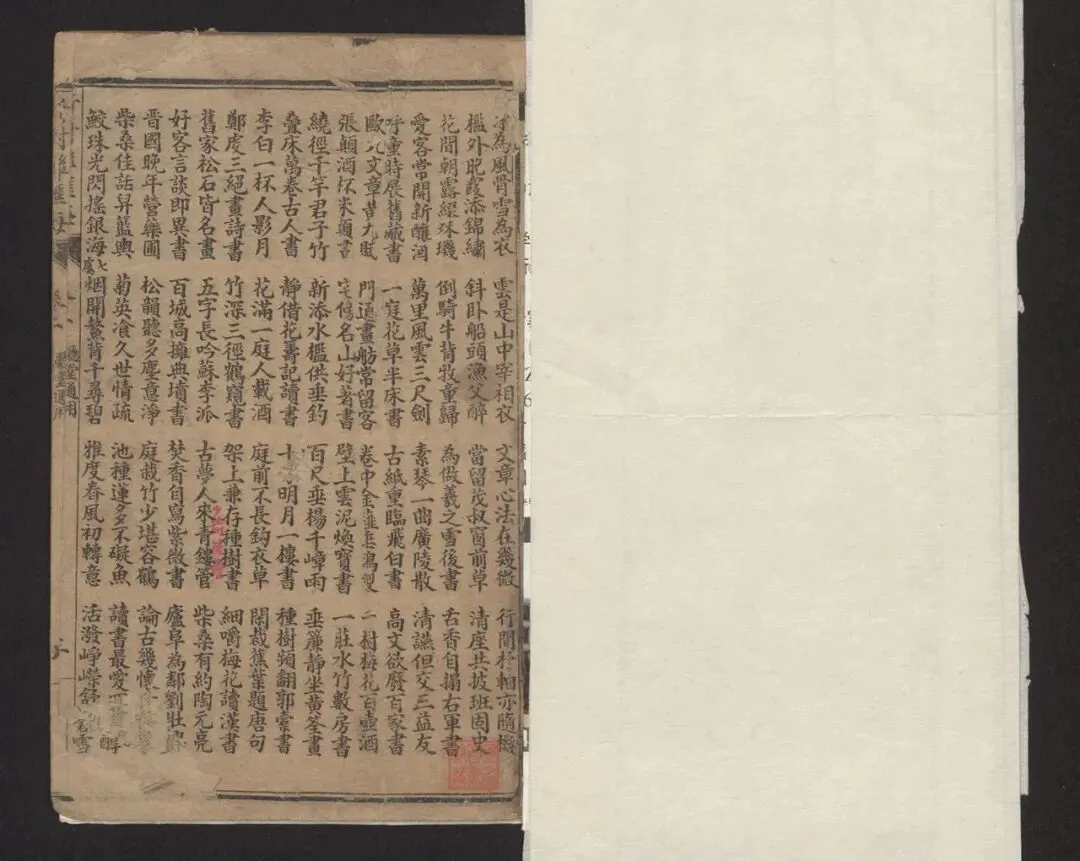 為風骨雪為衣　雲是山中宰相衣　文章心法在幾微　行間杼軸亦隨機
檻外晚霞添錦繡　斜臥船頭漁父醉　當留茂叔窗前草　清座共披班固史
花間朝露綴珠璣　倒騎牛背牧童歸　為倣羲之雪後書　舌香自搨右軍書
愛客常開新釀酒　萬里風雲三尺劍　素琴一曲廣陵散　清讌但交三益友
呼童時展舊藏書　一庭花草半床書　古紙重臨飛白書　高文欲廢百家書
歐九文章黃九賦　門通畫舫常留客　卷中金薤垂鴻製　二樹梅花百壺酒
張顛酒杯米顛書　宅傍名山好著書　壁上雲泥煥寶書　一莊水竹數房書
繞徑千竿君子竹　新添水檻供垂釣　百尺垂楊千嶂雨　垂簾靜坐黃筌畫
疊床萬卷古人書　靜借花籌記讀書　十明月一樓書　種樹頻翻郭橐書
李白一杯人影月　花滿一庭人載酒　庭前不長鈎衣草　閑裁蕉葉題唐句
鄭虔三絕畫詩書　竹深三徑鶴窺書　架上兼存種樹書　細嚼梅花讀漢書
舊家松石皆名畫　五字長吟蘇李派　古夢人來青鏤管　柴桑有約陶元亮
好客言談即異書　百城高擁典墳書　焚香自寫紫微書　廬阜為鄰劉壯輿
晉國晚年營樂圃　松韻聽多塵意淨　庭栽竹少堪容鶴　論古幾懷
柴桑佳話舁籃輿　菊英飡久世情疏　池種蓮多不礙魚　讀書最愛
鮫珠光閃搖銀海　七虞　烟開鰲背千尋碧　雅度春風初轉意　活潑崢嶸舒